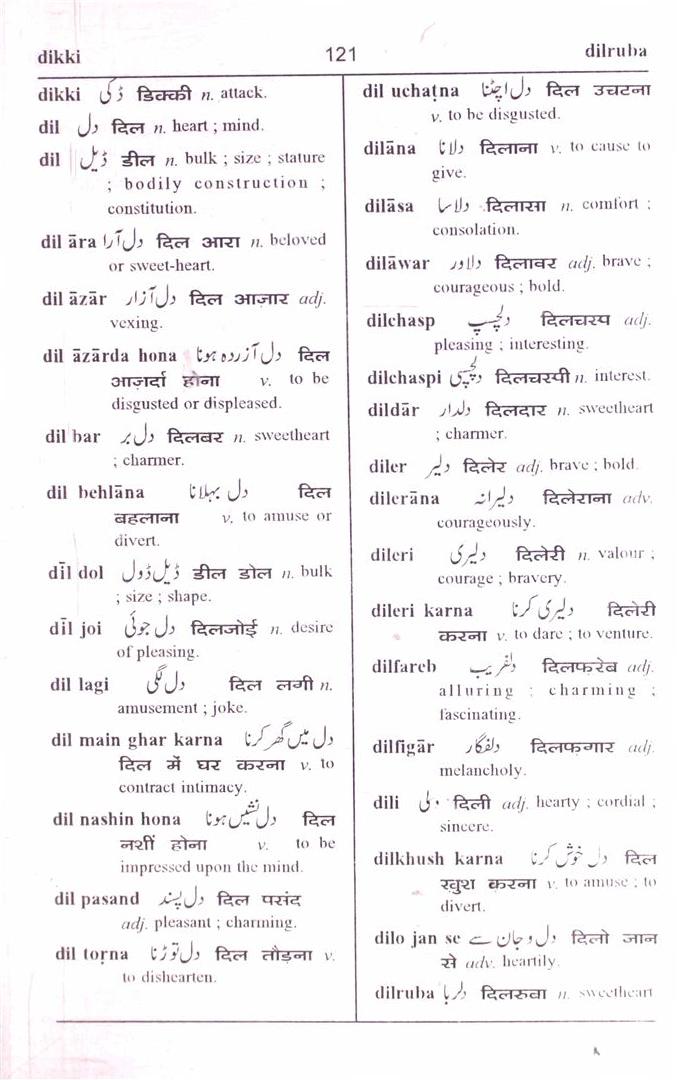 dikki 121 dilruba
dikki ڈکی डिक्की n. attack.
dil دل दिल n. heart ; mind.
dil ڈیل डील n. bulk ; size ; stature
; bodily construction ;
constitution.
dil āra دل آرا दिल आरा n. beloved
or sweet-heart.
dil āzār دل آزار दिल आज़ार adj.
vexing.
dil āzārda hona دل آزردہ ہونا दिल
आज़र्दा होना v. to be
disgusted or displeased.
dil bar دل بر दिलबर n. sweetheart
; charmer.
dil behlāna دل بہلانا दिल
बहलाना v. to amuse or
divert.
dīl dol ڈیل ڈول डील डोल n. bulk
; size ; shape.
dīl joi دل جوئی दिलजोई n. desire
of pleasing.
dil lagi دل لگی दिल लगी n.
amusement ; joke.
dil main ghar karna دل میں گھر کرنا
दिल में घर करना v. to
contract intimacy.
dil nashin hona دل نشیں ہونا दिल
नशीं होना v. to be
impressed upon the mind.
dil pasand دل پسند दिल पसंद
adj. pleasant ; charming.
dil toṛna دل توڑنا दिल तौड़ना v.
to dishearten.
dil uchaṭna دل اچٹنا दिल उचटना
v. to be disgusted.
dilāna دلانا दिलाना v. to cause to
give.
dilāsa دلاسا दिलासा n. comfort ;
consolation.
dilāwar دلاور दिलावर adj. brave ;
courageous ; bold.
dilchasp دلچسپ दिलचस्प adj.
pleasing ; interesting.
dilchaspi دلچسپی दिलचस्पी n. interest.
dildār دلدار दिलदार n. sweetheart
; charmer.
diler دلیر दिलेर adj. brave ; bold.
dilerāna دلیرانہ दिलेराना adv.
courageously.
dileri دلیری दिलेरी n. valour ;
courage ; bravery.
dileri karna دلیری کرنا दिलेरी
करना v. to dare ; to venture.
dilfareb دلفریب दिलफ़रेब adj.
alluring ; charming ;
fascinating.
dilfigār دلفگار दिलफ़गार adj.
melancholy.
dili دلی दिली adj. hearty ; cordial ;
sincere.
dilkhush karna دل خوش کرنا दिल
खुश करना v. to amuse ; to
divert.
dilo jan se دل و جان سے दिलो जान
से adv. heartily.
dilruba دلربا दिलरुवा n. sweetheart